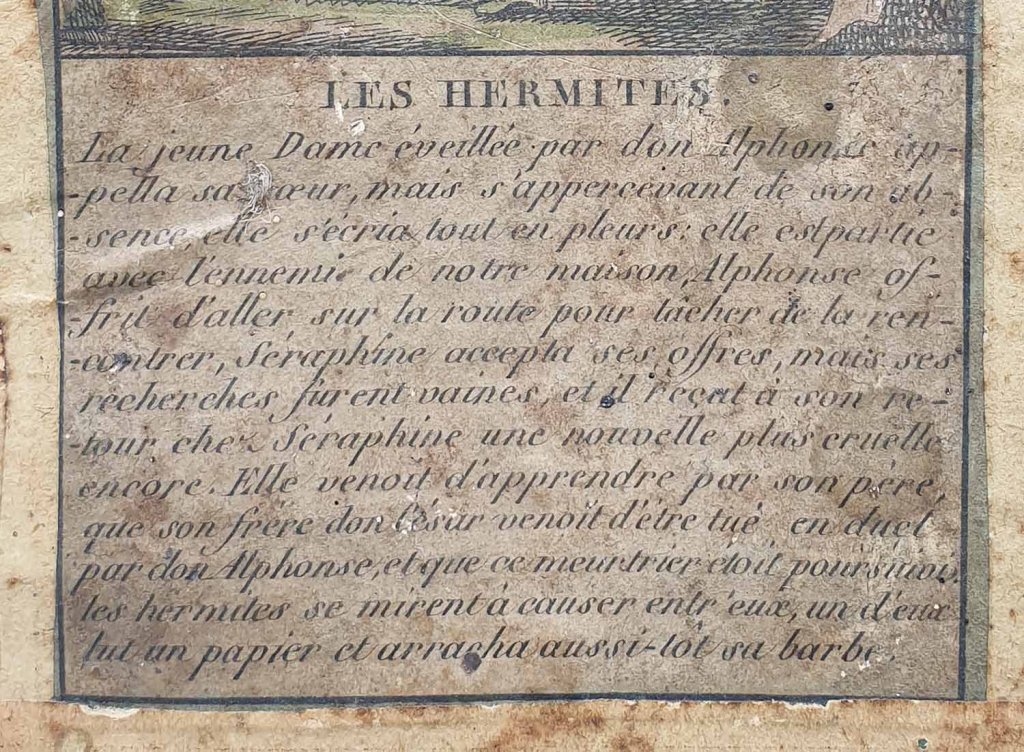 LES HERMITES.
La jeune Dame éveillée par don Alphonse ap-
-pella sa sœur, mais s'appercevant de son ab-
-sence, elle s'écria tout en pleurs: elle est partie
avec l'ennemi de notre maison, Alphonse of-
-frit d'aller sur la route pour tâcher de la ren-
-contrer, Séraphine accepta ses offres, mais ses
recherches furent vaines, et il reçut à son re-
-tour chez Séraphine une nouvelle plus cruelle
encore. Elle venoit d'apprendre par son père,
que son frère don César venoit d'être tué en duel
par don Alphonse, et que ce meurtrier étoit poursuivi.
les hermites se mirent à causer entr'eux, un d'eux
lut un papier et arracha aussi-tôt sa barbe.